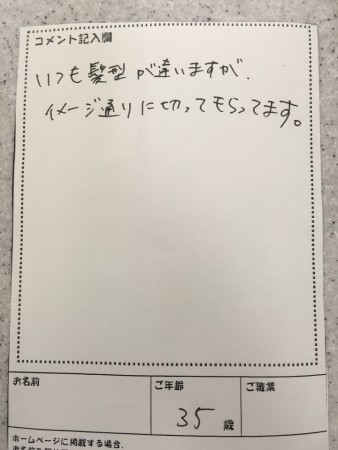 コメント記入欄
いつも髪型が違いますが、
イメージ通りに切ってもらってます。
お名前
ご年齢
ご職業
35歳
ホームページに掲載する場合、